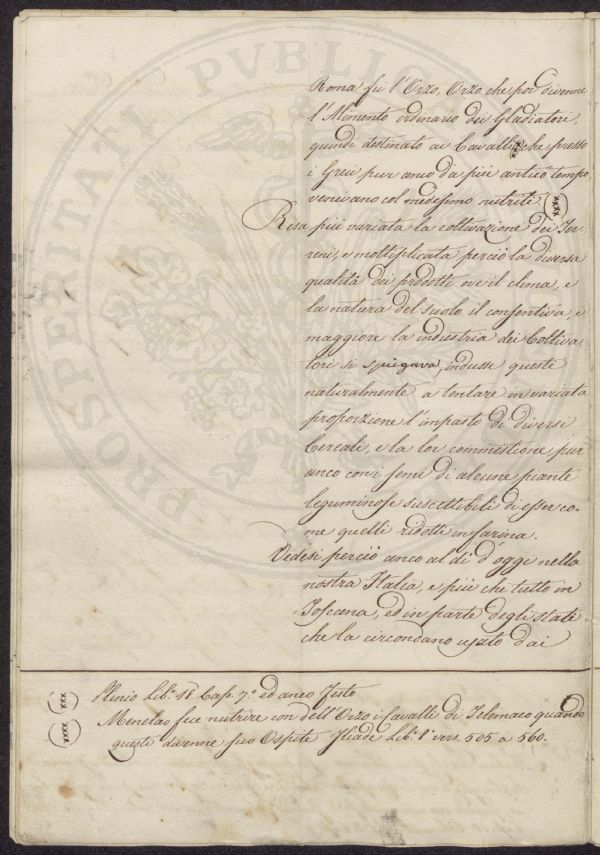 PROSPERITATI PVBLICAE
Roma fù l'Orzo, Orzo che poi divenne
l'Alimento ordinario dei Gladiatori,
quindi destinato ai Cavalli, che presso
i Greci pur anco da più antico tempo
venivano col medesimo nutriti. (xxxx)
Resa più variata la coltivazione dei Ter-
reni, e moltiplicata perciò la diversa
qualità dei prodotti ove il clima, e
la natura del suolo il consentiva, e
maggiore la industria dei Coltiva-
tori si spiegava, indusse questi
naturalmente a tentare in variata
proporzione l'impasto di diversi
Cereali, e la lor commestione pur
anco con i semi di alcune piante
leguminose suscettibili di esser co-
me quelli ridotti in farina.
Vedesi perciò anco al dì d'oggi nella
nostra Italia, e più che tutto in
Toscana, ed in parte degli stati
che la circondano usato dai
(xxx) Plinio Lib.º 18. Cap. 7.º ed anco Festo
(xxxx) Menelao fece nutrire con dell'Orzo i Cavalli di Telemaco quando
questi divenne suo Ospite Iliade Lib.º 1.º vers. 505 a 560.